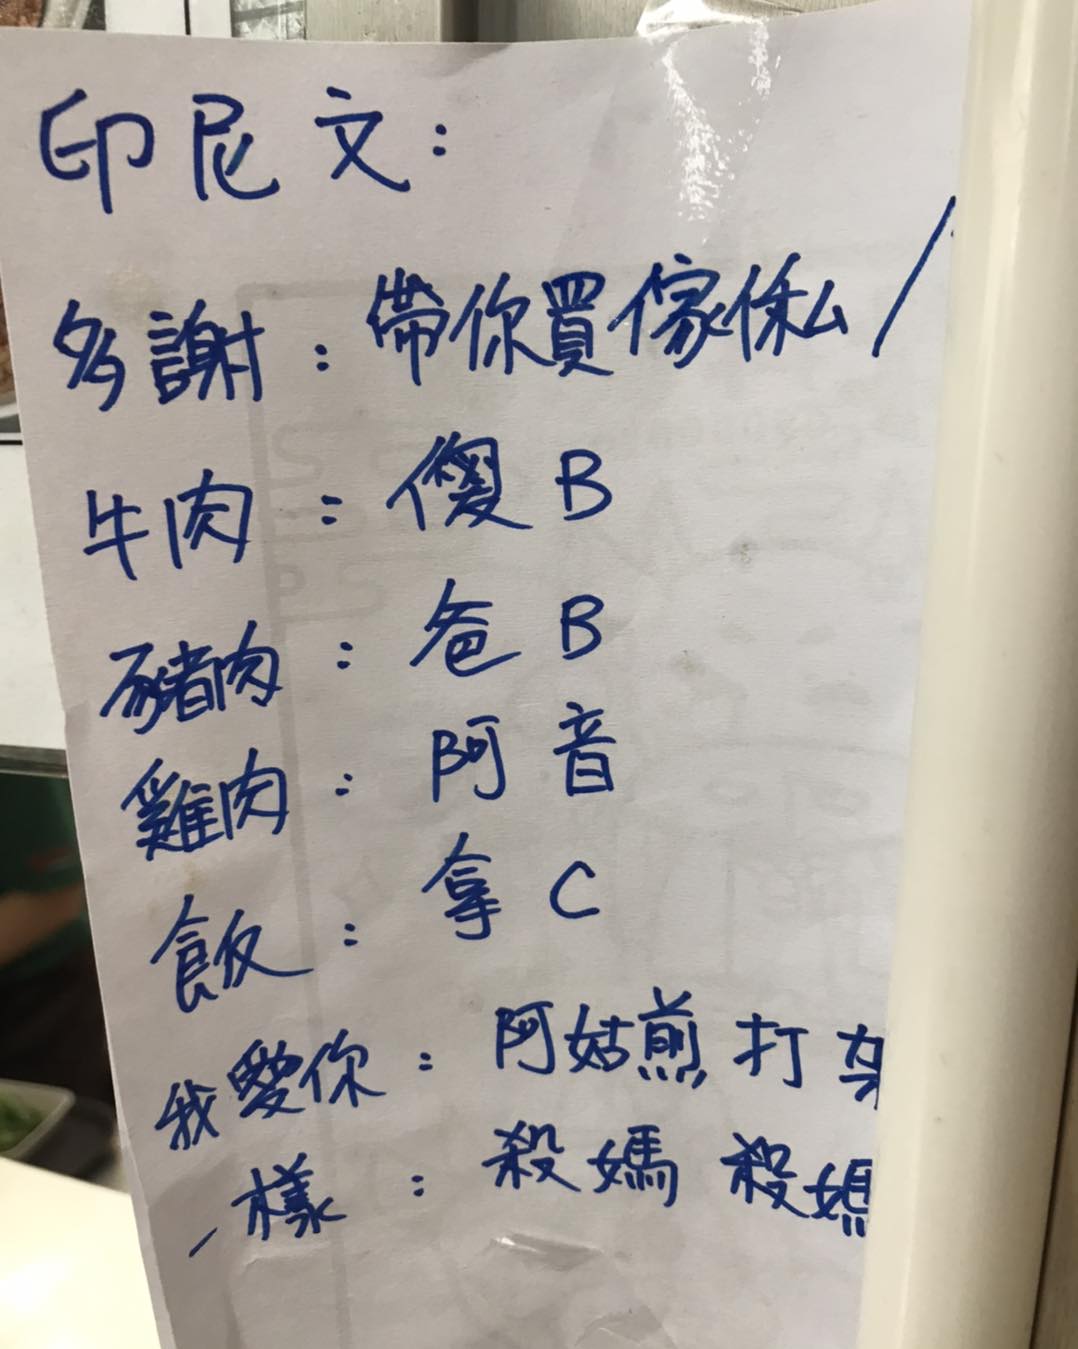 印尼文：
多謝：帶你買傢俬/
牛肉：傻B
豬肉：爸B
雞肉：阿音
飯：拿C
我愛你：阿姑煎打架
一樣：殺媽殺媽